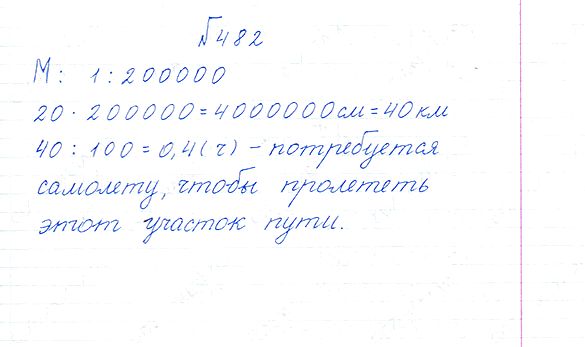 №482
М: 1:200000
20·200000=4000000см=40км
40:100=0,4(ч) – потребуется
самолету, чтобы пролететь
этот участок пути.